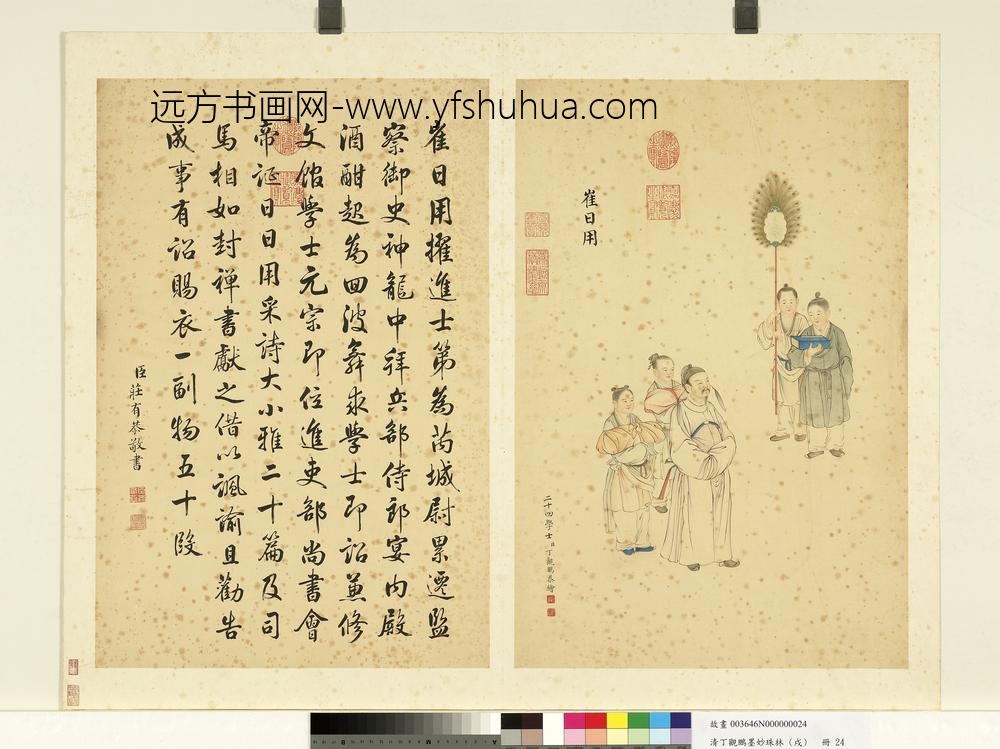 远方书画网-www.yfshuhua.com
崔日用
二十四學士 臣丁觀鵬恭繪
崔日用擢進士第為芮城尉累遷監
察御史神龍中拜兵部侍郎宴内殿
酒酣起為回波舞求學士即詔兼修
文館學士元宗即位進吏部尚書會
帝誕日日用采詩大小雅二十篇及司
馬相如封禅書獻之借以諷諭且勸告
成事有詔賜衣一副物五十段
臣莊有恭敬書
故畫 003646N000000024
清丁觀鵬墨妙珠林（戌） 冊 24